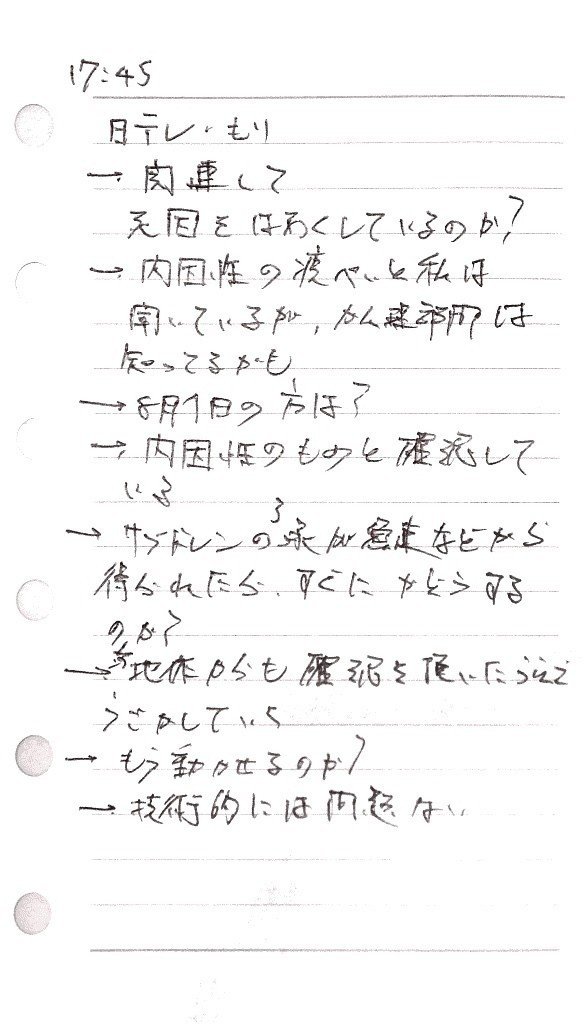 17:45
日テレ・もり
→ 関連して
死因をはあくしているのか?
→ 内因性の疲へいと私は
聞いているが、かん連部門は
知ってるかも
→ 8月1日の方は?
→ 内因性のものと確認して
いる
→ サブドレンの
得られたら、すぐにかどうする
のか?
→ 地体からも確認を頂いたうえで
うごかしていく
→ もう動かせるのか?
→ 技術的には問題ない